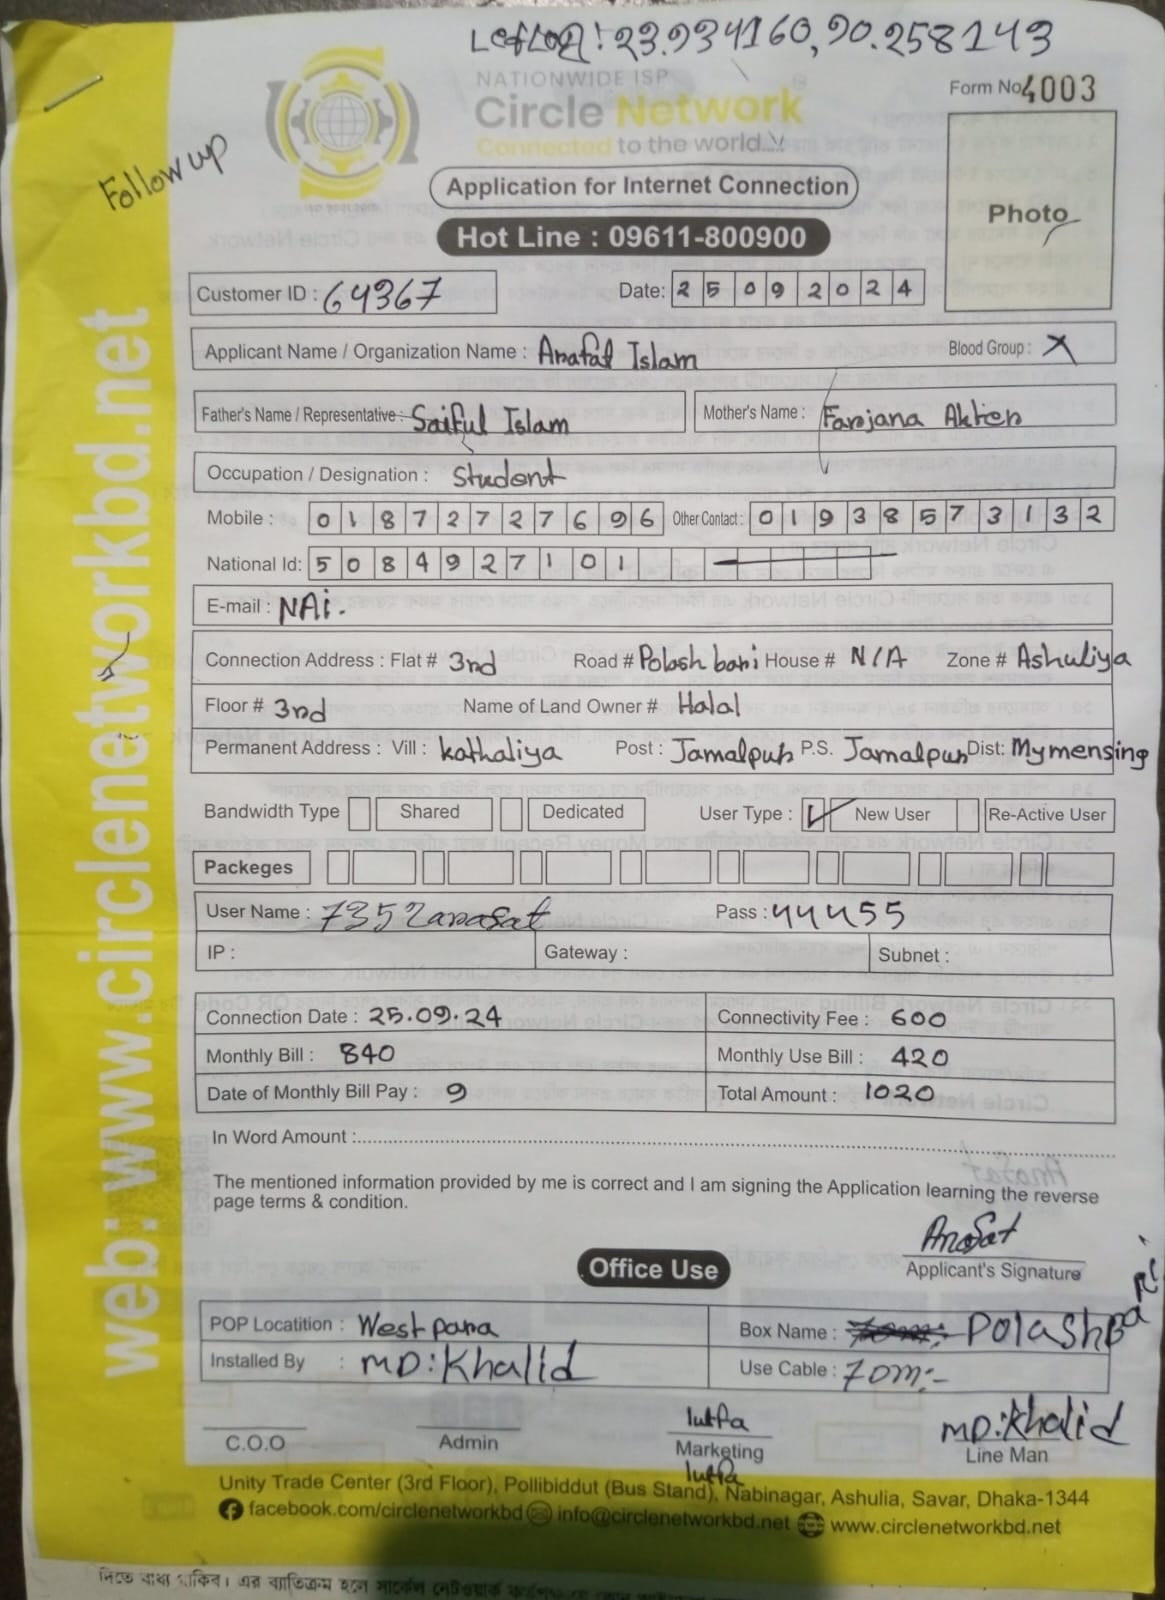 23.934160, 90.258143
NATIONWIDE ISP
Circle Network
Connected to the world...
Form No 4003
Follow up
Application for Internet Connection
Hot Line : 09611-800900
Photo
Customer ID : 64367
Date: 25092024
Applicant Name / Organization Name : Arafat Islam
Blood Group : X
Father's Name / Representative : Saiful Islam
Mother's Name : Farjana Akter
Occupation / Designation : Student
Mobile : 01872727696 Other Contact : 01938573132
National Id: 5084927101
E-mail : NAi.
Connection Address : Flat # 3rd Road # Polash bari House # N/A Zone # Ashuliya
Floor # 3rd Name of Land Owner # Halal
Permanent Address : Vill : kathaliya Post : Jamalpur P.S. Jamalpur Dist: Mymensing
Bandwidth Type Shared Dedicated User Type : New User Re-Active User
Packeges
User Name : 7352arafat Pass : 44455
IP : Gateway : Subnet :
Connection Date : 25.09.24 Connectivity Fee : 600
Monthly Bill : 840 Monthly Use Bill : 420
Date of Monthly Bill Pay : 9 Total Amount : 1020
In Word Amount :
The mentioned information provided by me is correct and I am signing the Application learning the reverse
page terms & condition.
Arafat
Applicant's Signature
Office Use
POP Locatition : West para Box Name : POlashBari
Installed By : MD:Khalid Use Cable : 70m:-
C.O.O Admin
lutfa
Marketing
lutfa
MD:Khalid
Line Man
Unity Trade Center (3rd Floor), Pollibiddut (Bus Stand), Nabinagar, Ashulia, Savar, Dhaka-1344
facebook.com/circlenetworkbd info@circlenetworkbd.net www.circlenetworkbd.net
web: www.circlenetworkbd.net